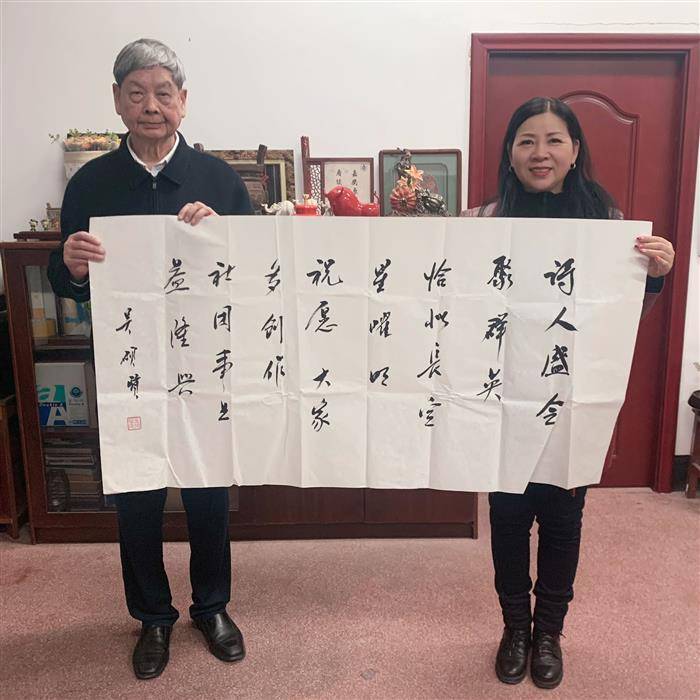 诗人盛会
聚群英
恰似長空
星曜明
祝愿大家
多创作
社团事业
益隆興
吴硕贤
A
Double A